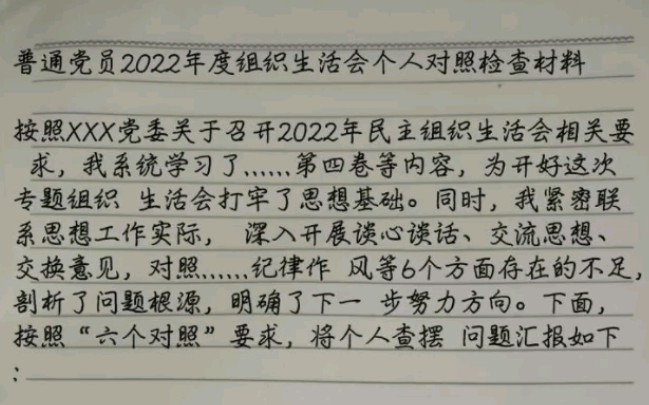 普通党员2022年度组织生活会个人对照检查材料
按照XXX党委关于召开2022年民主组织生活会相关要
求，我系统学习了......第四卷等内容，为开好这次
专题组织 生活会打牢了思想基础。同时，我紧密联
系思想工作实际， 深入开展谈心谈话、交流思想、
交换意见，对照......纪律作 风等6个方面存在的不足，
剖析了问题根源，明确了下一 步努力方向。下面，
按照“六个对照”要求，将个人查摆 问题汇报如下
：